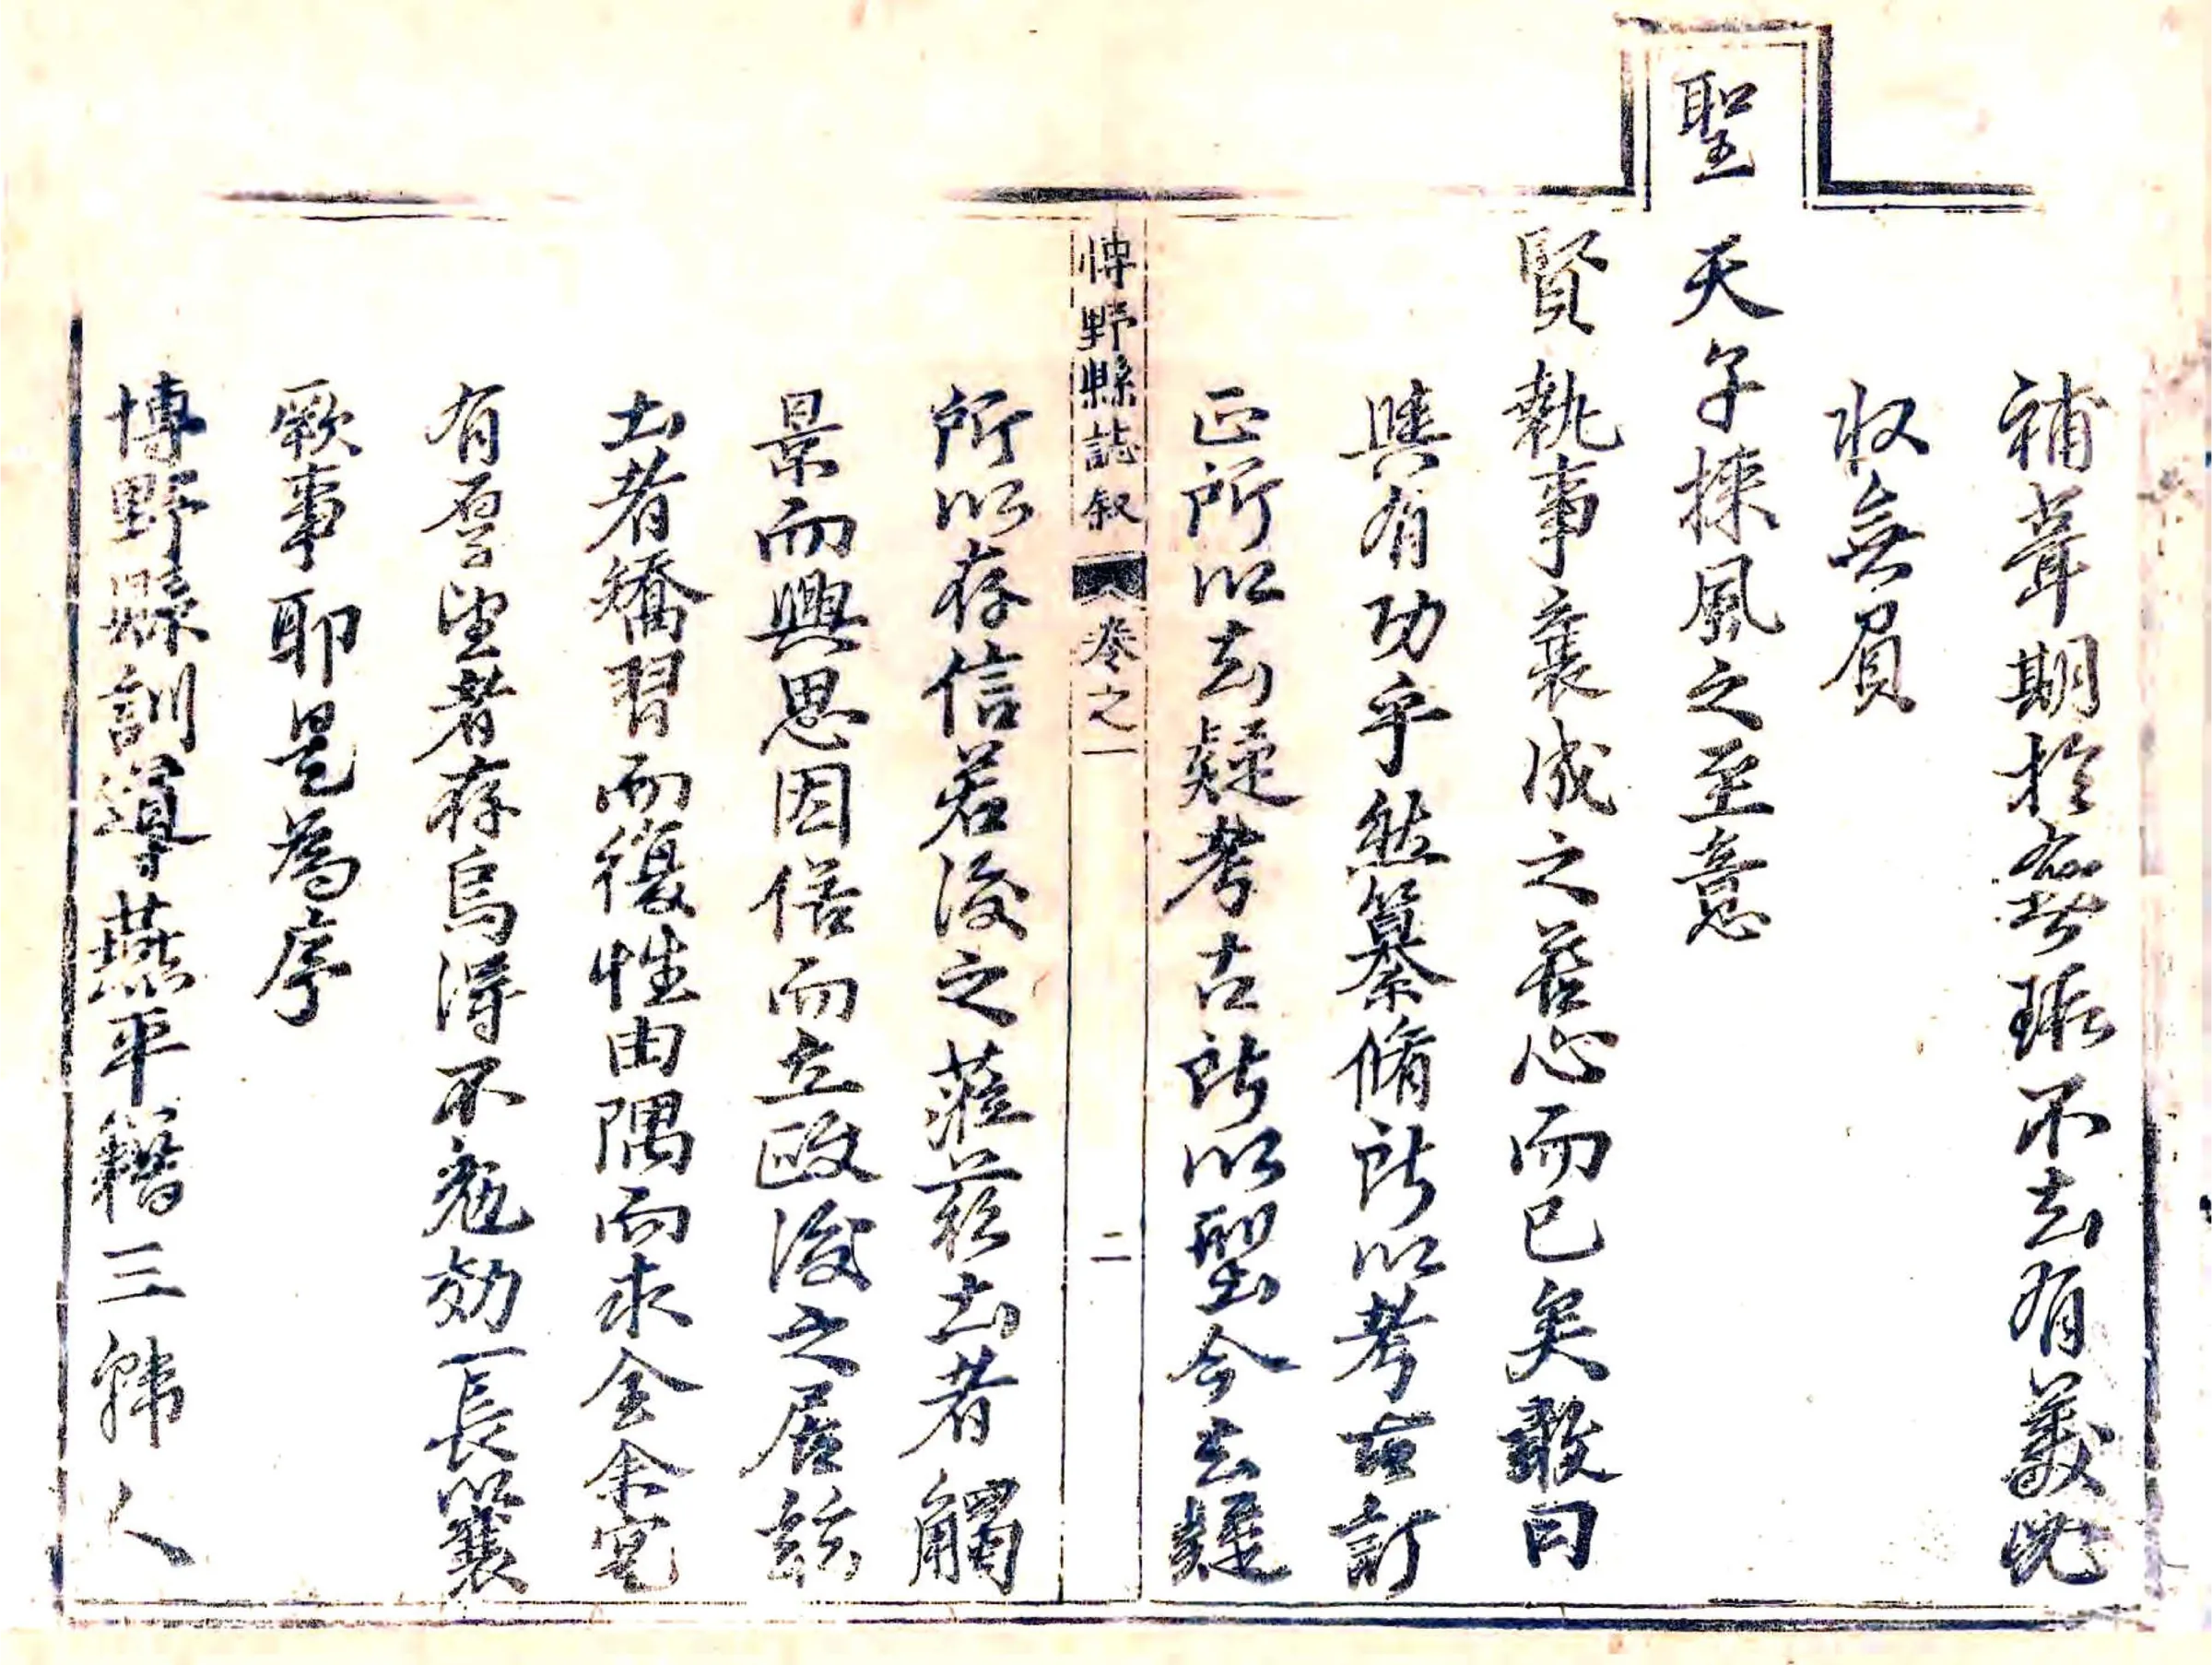 補葺期於無瑕不去有美必
収無負
聖天子採風之至意
賢執事襄成之苦心而已矣敢曰
與有功乎然纂脩所以考古訂
正所以去疑考古所以型今去疑
博野縣誌叙 卷之一 二
所以存信若後之蒞茲土者觸
景而興思因俗而立政後之居茲
土者矯習而復性由隅而求全余寔
有厚望者存焉得不勉効一長以襄
厥事耶是為序
博野縣訓導燕平籍三韓人